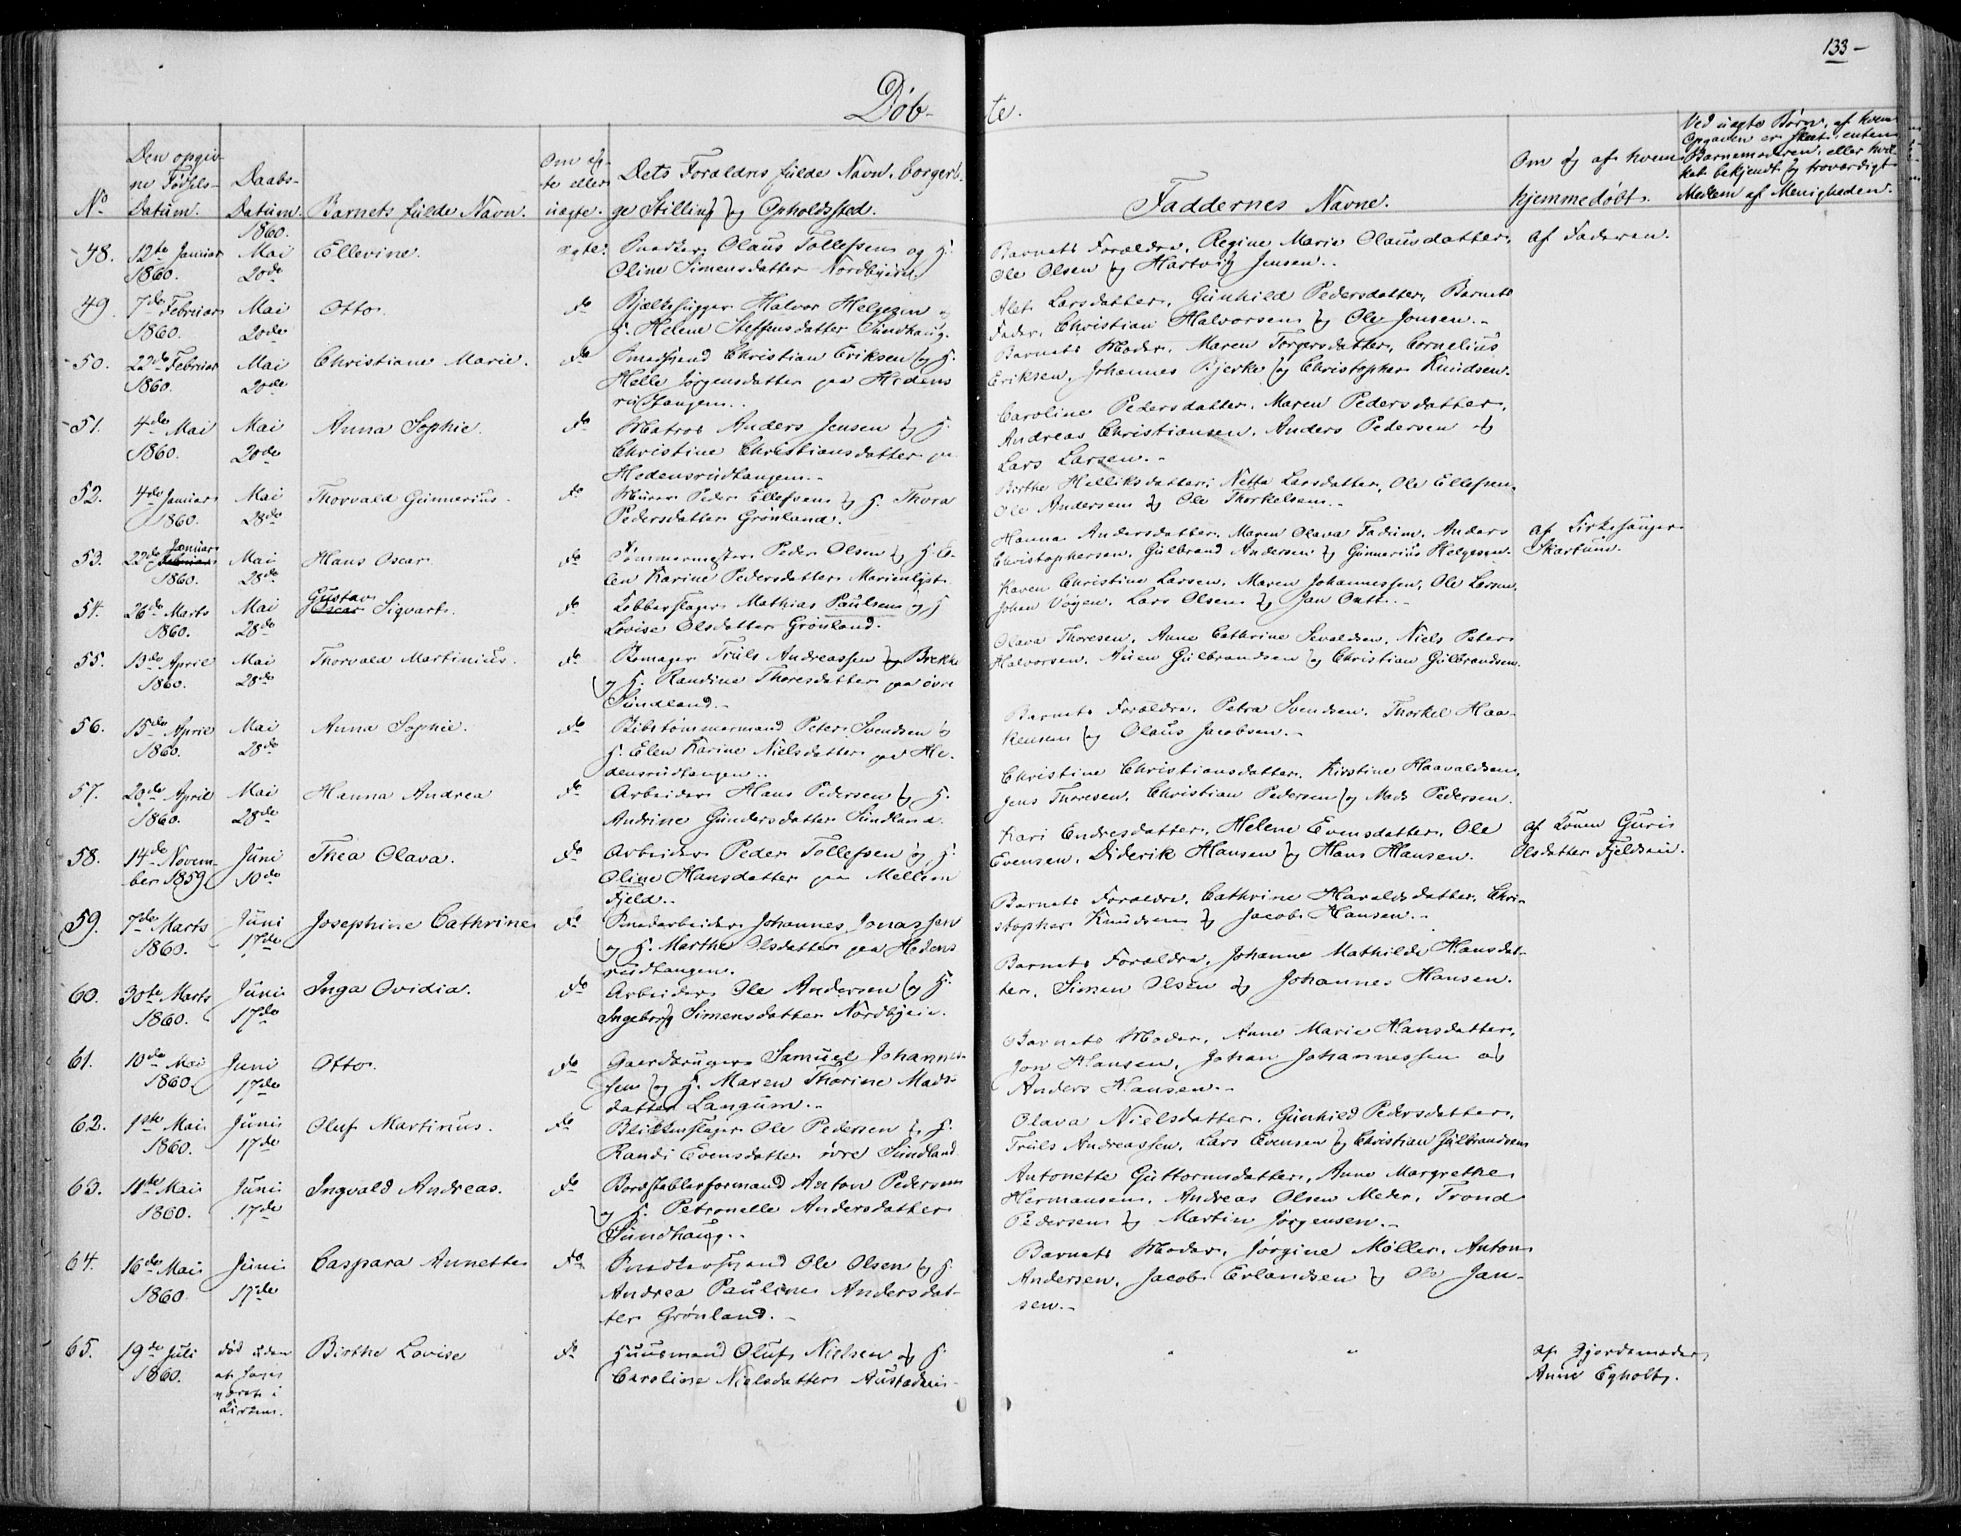 133 –
Døb-
te.
No
Den opgiv-
ne Fødsels-
Datum.
Daabs-
Datum.
1860.
Barnets fulde Navn.
Om æg-
te eller
uægte.
Dets Forældres fulde Navn, borgerli-
ge Stilling og Opholdssted.
Faddernes Navne.
Om og af hvem
hjemmedøbt.
Ved uægte Børn, af hvem
Opgaven er skeet, enten
Barnemoderen, eller hvil-
ket bekjendt og troværdigt
Medlem af Menigheden.
48.
12te Januar
1860.
Mai
20de
Ellevine.
ægte.
Snedker Olaus Tollefsen og H.
Oline Simensdatter Nordbyein
Barnets Forældre, Regine Marie Olausdatter,
Ole Olsen og Hartvig Jensen.
af Faderen.
49.
7de Februar
1860.
Mai
20de
Otto.
do
Bjælkehugger Halvor Helgesen og
H. Helene Steffensdatter Sundhaug.
Alet Larsdatter, Gunhild Pedersdatter, Barnets
Fader, Christian Halvorsen og Ole Jonsen.
50.
22de Februar
1860.
Mai
20de
Christiane Marie.
do
Christian Eriksen og H.
Helle Jørgensdatter paa Hedens
rudtangen.
Barnets Moder, Maren Torgersdatter, Cornelius
Eriksen, Johannes Bjerke og Christopher Knudsen.
51.
4de Mai
1860.
Mai
20de
Anna Sophie.
do
Matros Anders Jensen og H.
Christine Christiansdatter paa
Hedensrudtangen.
Caroline Pedersdatter, Maren Pedersdatter,
Andreas Christiansen, Anders Pedersen og
Lars Larsen.
52.
4de Januar
1860.
Mai
28de
Thorvald Gunnerius.
do
Murer Peder Ellefsen og H. Thora
Pedersdatter Grønland.
Birthe Helliksdatter, Netta Larsdatter, Ole Ellefsen,
Ole Andersen og Ole Thorkelsen.
53.
22de Januar
Februar
1860.
Mai
28de
Hans Oscar
do
Tømmermester Peder Olsen og H. El-
len Karine Pedersdatter Marienlyst.
Hanna Andersdatter, Maren Olava Fadum, Anders
Christophersen, Gulbrand Andersen og Gunnerius Helgesen.
af Kirkesanger
Skartum.
54.
26de Marts
1860.
Mai
28de
Gustav
Oscar Sigvart.
do
Kobberslager Mathias Paulsen og H
Lovise Olsdatter Grønland.
Karen Christine Larsen, Maren Johannessen, Ole Larsen,
Johan Lars Olsen og Jan
55.
13de April
1860.
Mai
28de
Thorvald Martinius.
do
Truls Andreassen Brekke
og H. Randine Thoresdatter paa øvre
Sundland.
Olava Thoresen, Anne Cathrine Sevaldsen, Niels Peter
Halvorsen, Auen Gulbrandsen og Christian Gulbrandsen.
56.
15de April
1860.
Mai
28de
Anna Sophie.
do
Skibstømmermand Peter Svendsen og
H. Elen Karine Nielsdatter paa He-
densrudtangen.
Barnets Forældre, Petra Svendsen, Thorkel Haa-
kensen og Olaus Jacobsen.
57.
20de April
1860.
Mai
28de
Hanna Andrea
do
Arbeider Hans Pedersen og H.
Andrine Gundersdatter Sundland.
Christine Christiansdatter, Kirstine Haavaldsen,
Jens Thoresen, Christian Pedersen og Mads Pedersen.
58.
14de Novem-
ber 1859.
Juni
10de
Thea Olava.
do
Arbeider Peder Tollefsen og H.
Oline Hansdatter paa Mellem
Fjeld.
Kari Endresdatter, Helene Evensdatter, Ole
Evensen, Diderik Hansen og Hans Hansen.
af Konen Guri
Olsdatter
59.
7de Marts
1860.
Juni
17de
Josephine Cathrine
do
Johannes Jonassen
og H. Marthe Olsdatter paa Hedens
rudtangen.
Barnets Forældre, Cathrine Haraldsdatter, Chri-
stopher Knudsen og Jacob Hansen.
60.
30te Marts
1860.
Juni
17de
Inga Ovidia.
do
Arbeider Ole Andersen og H.
Ingeborg Simensdatter Nordbyein.
Barnets Forældre, Johanne Mathilde Hansdat-
ter, Simen Olsen og Johannes Hansen.
61.
10de Mai
1860.
Juni
17de
Otto.
do
Gaardbruger Samuel Johannes
sen og H. Maren Thorine Mads-
datter Langum.
Barnets Moder, Anne Marie Hansdatter,
Jon Hansen, Johan Johannessen og
Anders Hansen.
62.
1ste Mai
1860.
Juni
17de
Oluf Martinius.
do
Blikkenslager Ole Pedersen og H.
Randi Evensdatter øvre Sundland
Olava Nielsdatter, Gunhild Pedersdatter,
Truls Andreassen, Lars Evensen og Christian Gulbrandsen
63.
11te Mai
1860.
Juni
17de
Ingvald Andreas.
do
Bordstablerformand Anton Pedersen
og H. Petronelle Andersdatter
Sundhaug.
Antonette Guttormsdatter, Anne Margrethe
Hermansen, Andreas Olsen Meder, Trond
Pedersen og Martin Jørgensen.
64.
16de Mai
1860.
Juni
17de
Caspara Annette
do
Ole Olsen og H
Andrea Pauline Andersdat-
ter Grønland.
Barnets Moder, Jørgine Møller, Anton
Andersen, Jacob Erlandsen og Ole Jan-
sen.
65.
19de Juli
1860.
død uden
at have
været i
Kirken.
Birthe Lovise
do
Huusmand Oluf Nielsen og H.
Caroline Nielsdatter
" "
af Gjordemoder
Anne Egholt.